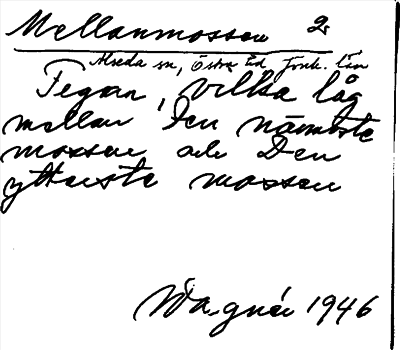 Mellanmossen 2.
Alseda sn, Östra hd, Jönk. län
Tegar, vilka låg
mellan den närmste
mossen och Den
ytterste mossen
Wagnér 1946